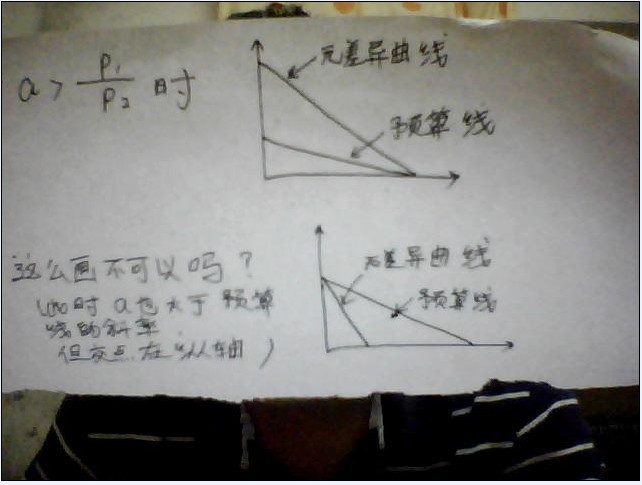 a > P₁/P₂ 时
无差异曲线
预算线
这么画不可以吗?
无差异曲线
预算线
时 a 也大于预算
线的斜率
但交点在 轴)